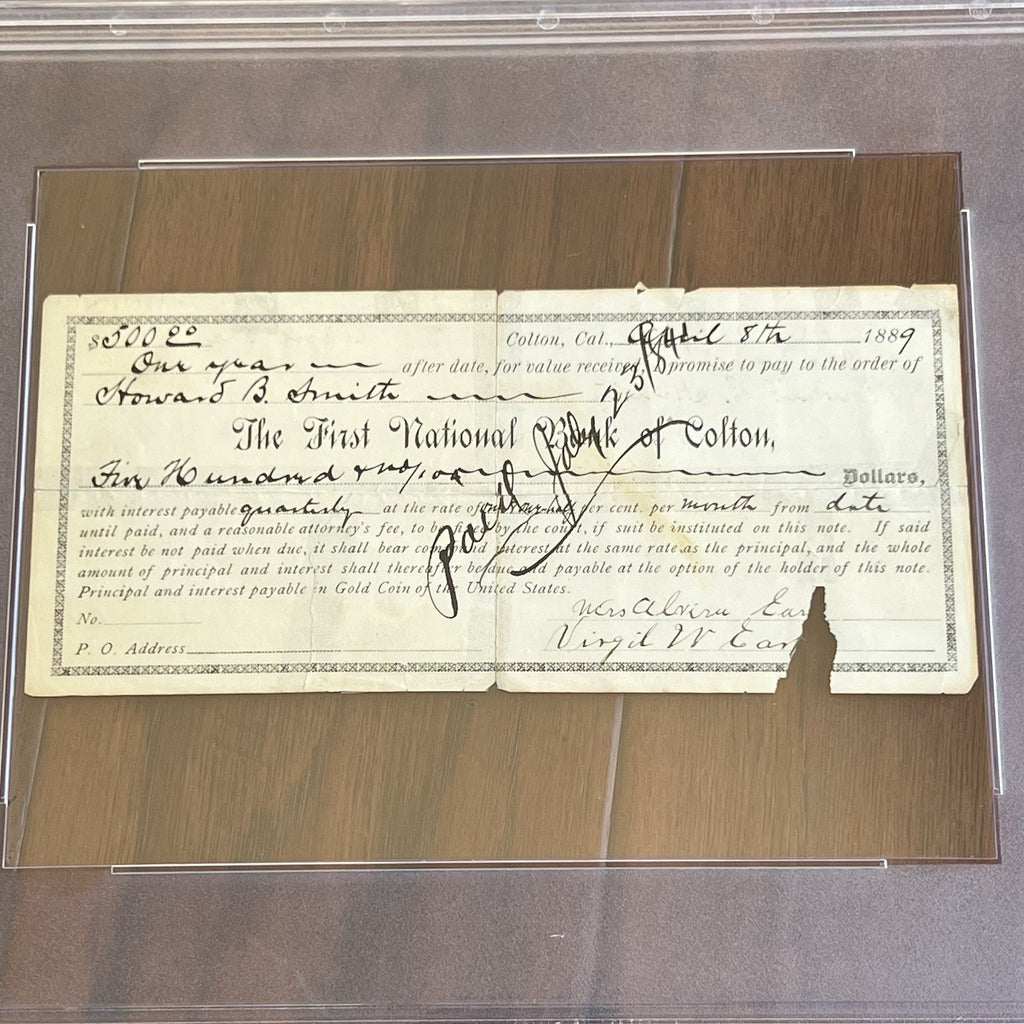 $500 00 Colton, Cal., April 8th 1889
One year after date, for value received, I promise to pay to the order of
Howard B. Smith
The First National Bank of Colton,
Five Hundred & no/100 Dollars,
with interest payable quarterly at the rate of one & one half per cent. per month from date
until paid, and a reasonable attorney's fee, to be fixed by the court, if suit be instituted on this note. If said
interest be not paid when due, it shall bear compound interest at the same rate as the principal, and the whole
amount of principal and interest shall thereafter be due and payable at the option of the holder of this note.
Principal and interest payable in Gold Coin of the United States.
Mrs Alvira Ear
No.
Virgil W Earp
P. O. Address
Paid